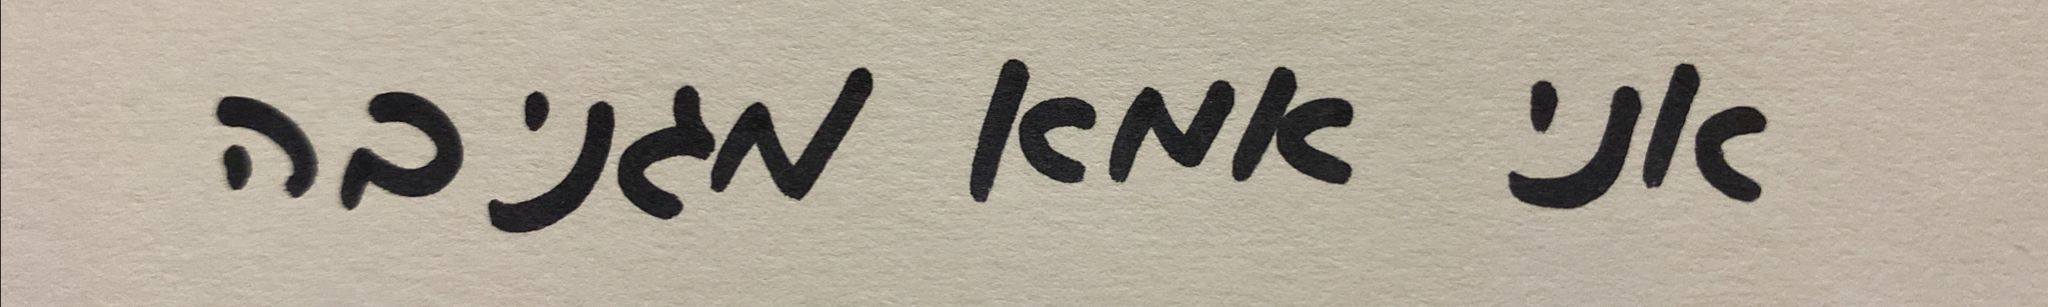 אני אמא מגניבה